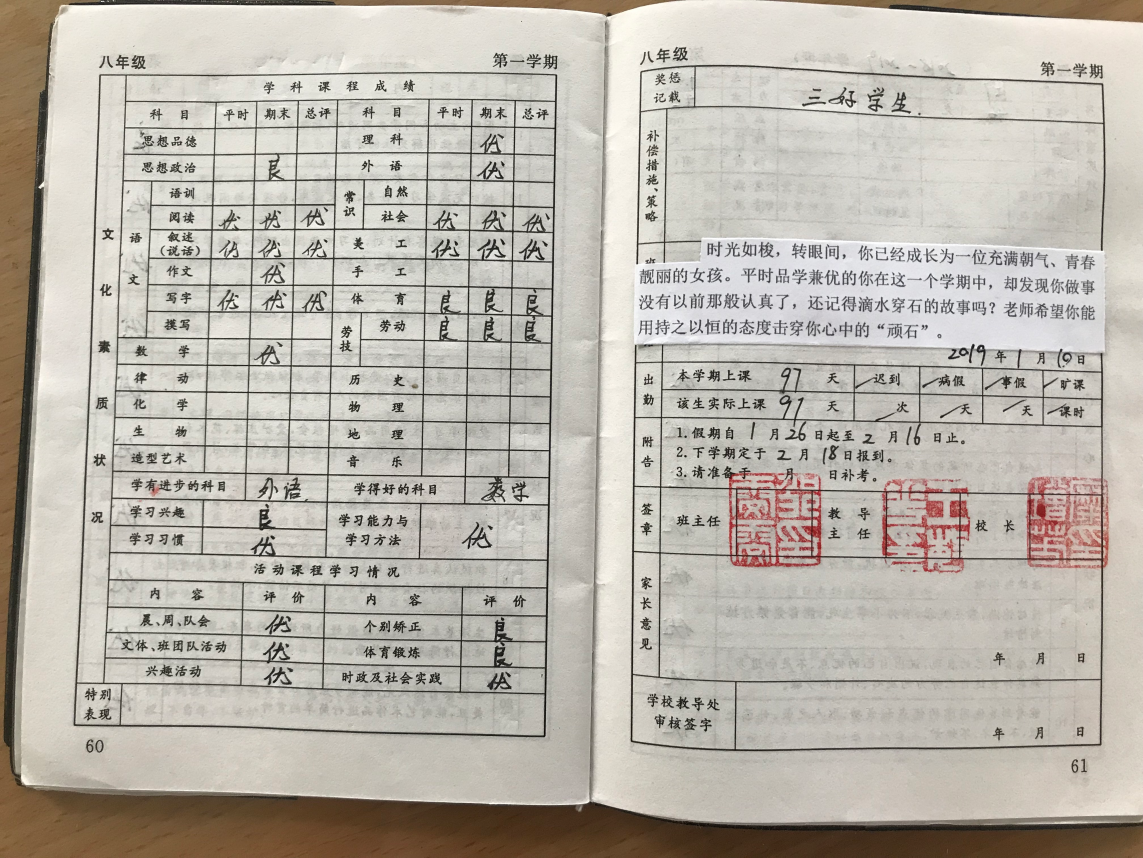 八年级 第一学期
学科课程成绩
科目 平时 期末 总评 科目 平时 期末 总评
思想品德 理科 优
思想政治 良 外语 优
文化素质状况
语文
语训 常识 自然
阅读 优 优 优 社会 优 优 优
叙述(说话) 优 优 优 美工 优 优 优
作文 优 手工
写字 优 优 优 体育 良 良 良
摸写 劳技 劳动 良 良 良
数学 优
律动 历史
化学 物理
生物 地理
造型艺术 音乐
学有进步的科目 外语 学得好的科目 数学
学习兴趣 良 学习能力与学习方法 优
学习习惯 优
活动课程学习情况
内容 评价 内容 评价
晨、周、队会 优 个别矫正 良
文体、班团队活动 优 体育锻炼 良
兴趣活动 优 时政及社会实践 优
特别表现
60
八年级 第一学期
奖惩记载 三好学生.
补偿措施、策略
班
时光如梭，转眼间，你已经成长为一位充满朝气、青春
靓丽的女孩。平时品学兼优的你在这一个学期中，却发现你做事
没有以前那般认真了，还记得滴水穿石的故事吗？老师希望你能
用持之以恒的态度击穿你心中的“顽石”。
2019年1月10日
出勤 本学期上课 97 天 迟到 病假 事假 旷课
该生实际上课 97 天 次 天 天 课时
附告 1.假期自1月26日起至2月16日止。
2.下学期定于2月18日报到。
3.请准备于 月 日补考。
签章 班主任 教导主任 校长
家长意见
年 月 日
学校教导处
审核签字
年 月 日
61